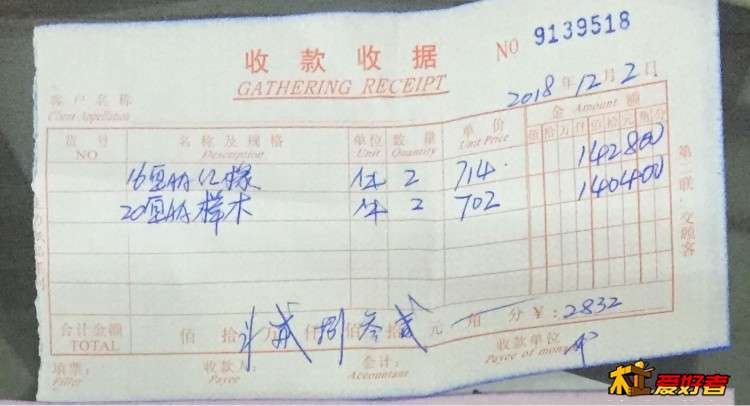 收款收据
GATHERING RECEIPT
NO 9139518
2018年12月2日
客户名称
Client Appellation
货号 NO
名称及规格 Description
单位 Unit
数量 Quantity
单价 Unit Price
金 Amount 额
佰 拾 万 仟 佰 拾 元 角 分
16厘AA红橡 件 2 714. 142800
20厘AA榉木 件 2 702 140400
第二联 交顾客
合计金额 TOTAL
佰 拾 万 贰 仟 捌 佰 叁 拾 贰 元 角 分 ¥:2832
填票: Filler
收款人: Payee
会计: Accountant
收款单位 Payee of money
木工爱好者